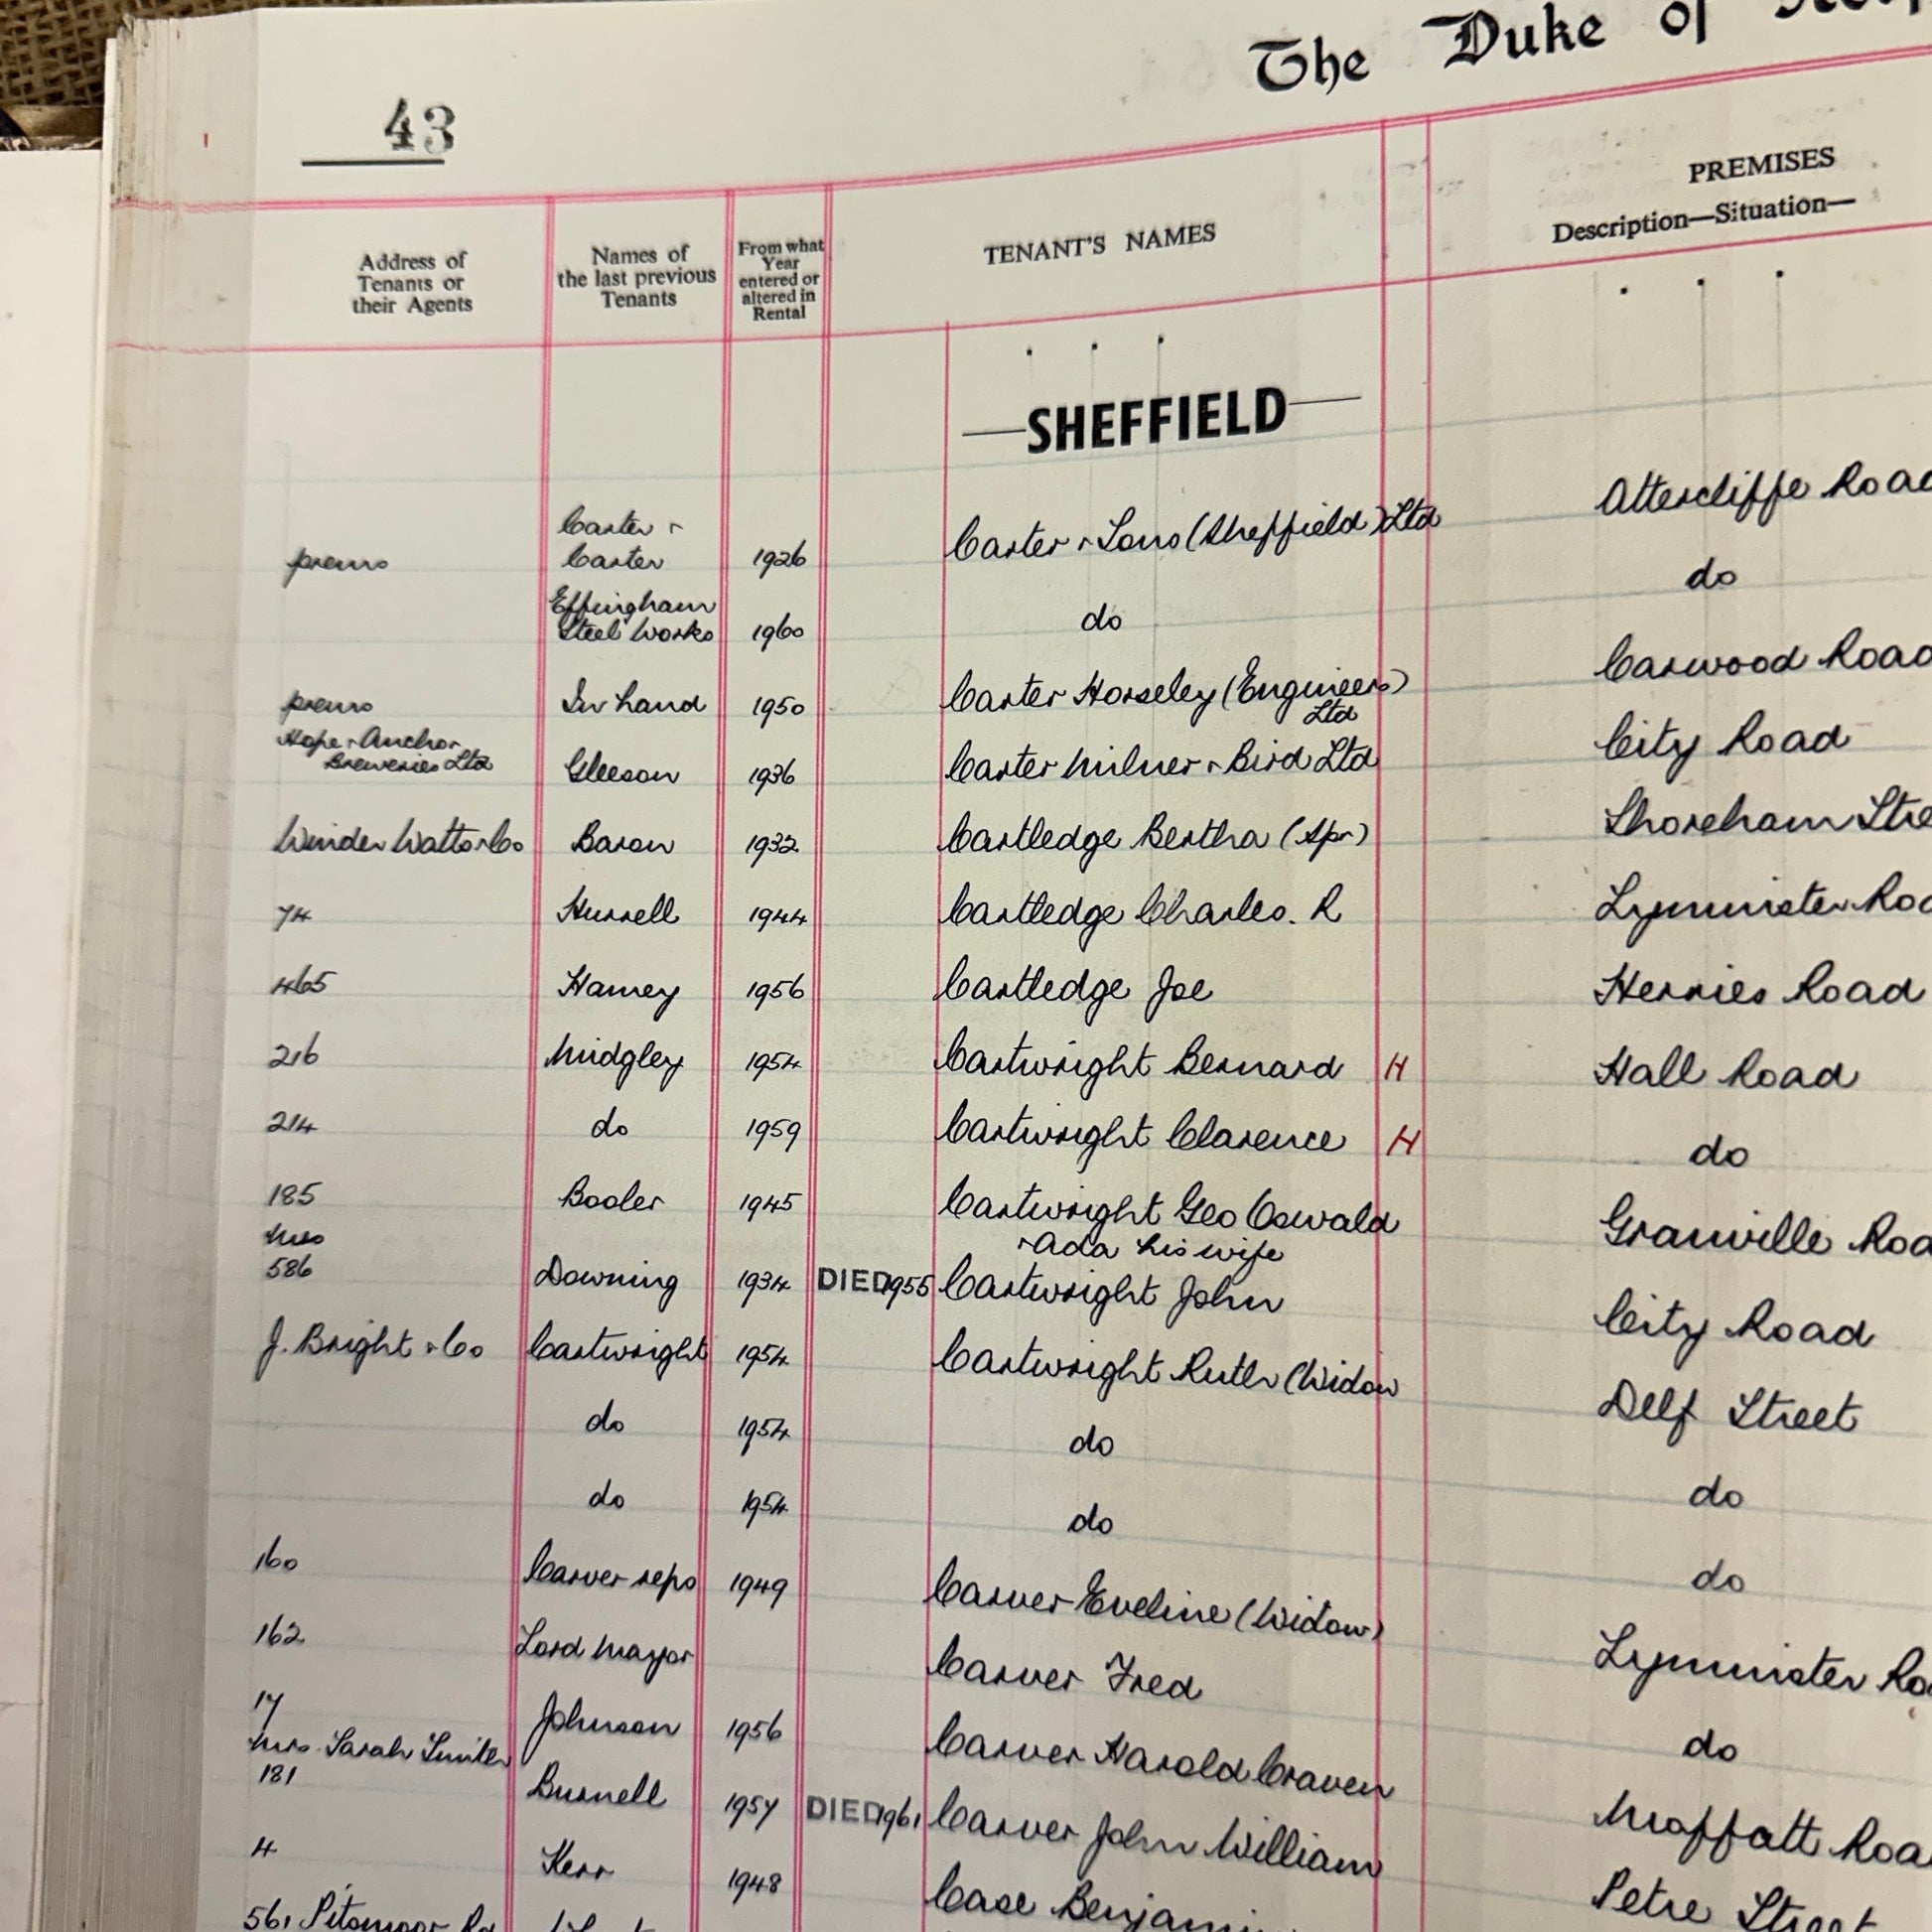 The Duke of
43
Address of Tenants or their Agents
Names of the last previous Tenants
From what Year entered or altered in Rental
TENANT'S NAMES
PREMISES
Description—Situation—
—SHEFFIELD—
prems Carter & Carter 1926 Carter & Sons (Sheffield) Ltd Attercliffe Road
Effingham Steel Works 1960 do do
prems In hand 1950 Carter Horseley (Engineers) Ltd Carwood Road
Hope & Anchor Breweries Ltd Gleeson 1936 Carter Milner & Bird Ltd City Road
Winder Watts & Co Baron 1932 Cartledge Bertha (Spr) Shoreham Stre
74 Hurrell 1944 Cartledge Charles. R Lyminster Roa
465 Hamey 1956 Cartledge Joe Herries Road
216 Midgley 1954 Cartwright Bernard H Hall Road
214 do 1959 Cartwright Clarence H do
185 Booler 1945 Cartwright Geo Oswald & Ada his wife Granville Roa
Mrs
586 Downing 1934 DIED 1955 Cartwright John City Road
J. Bright & Co Cartwright 1954 Cartwright Ruth (Widow Delf Street
do 1954 do do
do 1954 do do
160 Carver reps 1949 Carver Eveline (Widow) Lyminster Ro
162 Lord Mayor Carver Fred do
17 Johnson 1956 Carver Harold Craven Moffatt Roa
Mrs. Sarah Smith
181 Burnell 1957 DIED 1961 Carver John William Petre Street
4 Kerr 1948 Case Benjami
561 Pitsmoor Rd